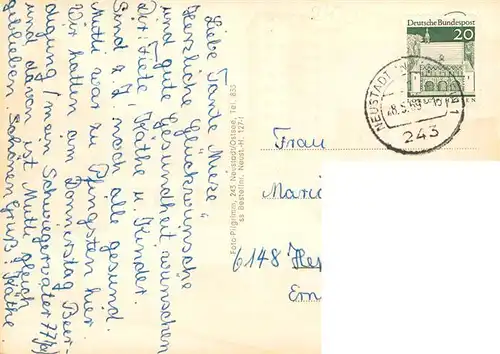 Liebe Tante Mieze!
Herzliche Glückwünsche
und gute Gesundheit wünschen
Dir Fiete, Käthe u. Kinder.
Sind z. Z. noch alle gesund.
Mutti war zu Pfingsten hier
Wir hatten am Donnerstag Beer-
digung/mein Schwiegervater 77 J./
und davon ist Mutti gleich
geblieben. Schönen Gruß! Käthe.
Foto-Pilgrimm, 243 Neustadt/Ostsee, Tel. 855
ss Bestellnr. Neust.-H. 127-1
Deutsche Bundespost
20
NEUSTADT
243
Frau
Mari
6148 Hep
Ern